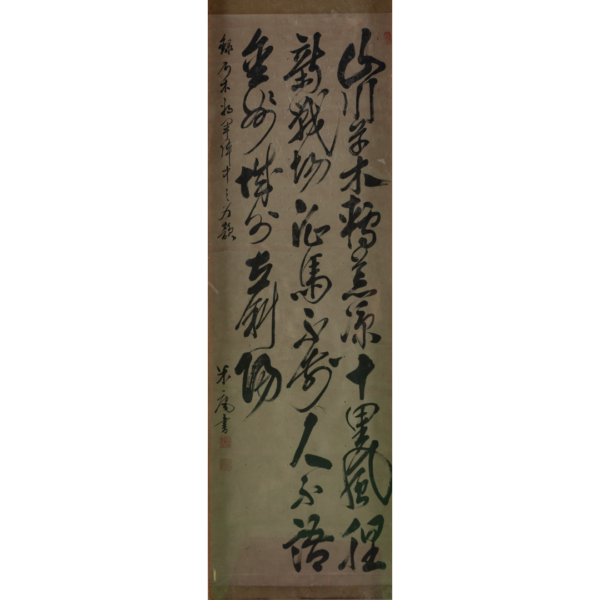 山川草木轉荒涼十里風腥
新戰場征馬不前人不語
金州城外立斜陽
錄乃木將軍陣中之為題
米庵書